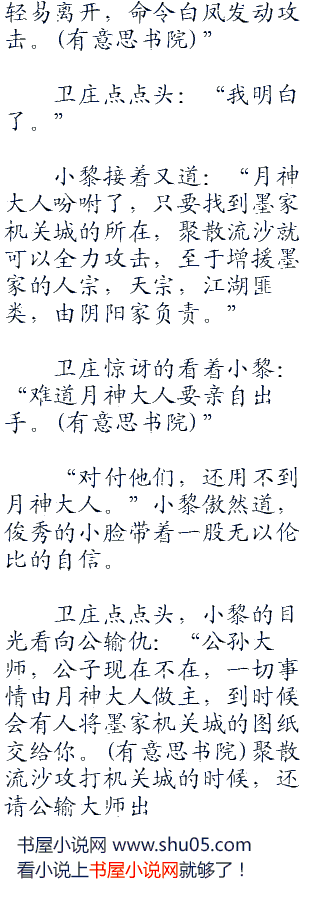 轻易离开，命令白凤发动攻
击。(有意思书院)”
卫庄点点头：“我明白
了。”
小黎接着又道：“月神
大人吩咐了，只要找到墨家
机关城的所在，聚散流沙就
可以全力攻击，至于增援墨
家的人宗，天宗，江湖匪
类，由阴阳家负责。”
卫庄惊讶的看着小黎：
“难道月神大人要亲自出
手。(有意思书院)”
“对付他们，还用不到
月神大人。”小黎傲然道，
俊秀的小脸带着一股无以伦
比的自信。
卫庄点点头，小黎的目
光看向公输仇：“公孙大
师，公子现在不在，一切事
情由月神大人做主，到时候
会有人将墨家机关城的图纸
交给你。(有意思书院)聚散
流沙攻打机关城的时候，还
请公输大师出
书屋小说网 www.shu05.com
看小说上书屋小说网就够了！